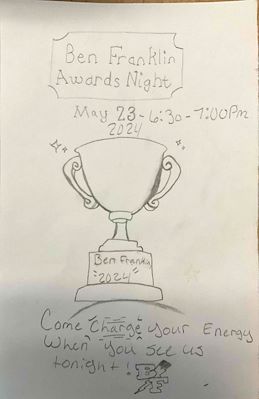 Ben Franklin
Awards Night
May 23 - 6:30 - 7:00Pm
2024
Ben Franklin
"2024"
Come Charge your Energy
When you see us
tonight!
B
F